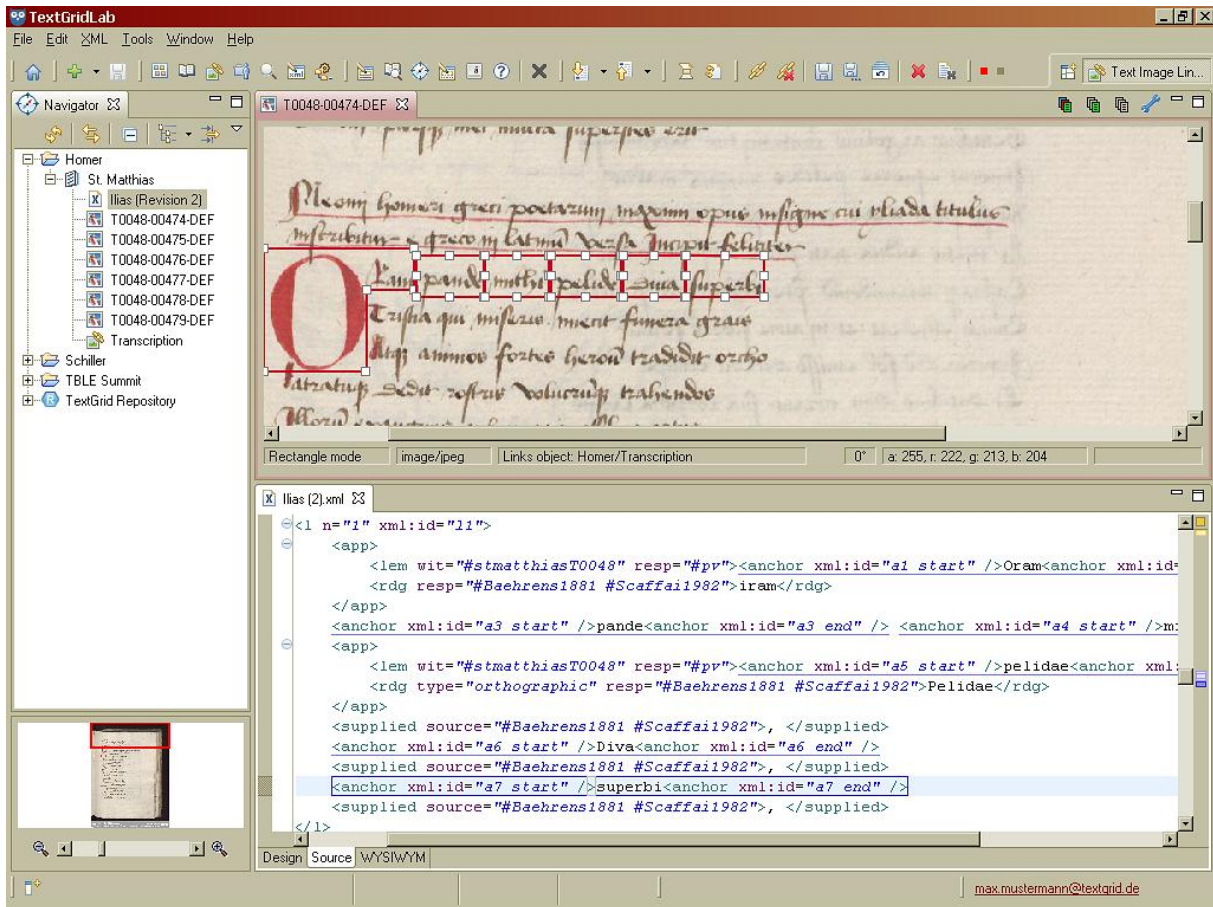 TextGridLab
File Edit XML Tools Window Help
Text Image Lin...
Navigator
Homer
St. Matthias
Ilias (Revision 2)
T0048-00474-DEF
T0048-00475-DEF
T0048-00476-DEF
T0048-00477-DEF
T0048-00478-DEF
T0048-00479-DEF
Transcription
Schiller
TBLE Summit
TextGrid Repository
T0048-00474-DEF
homeri greci poetarum opus insigne cui yliada titulus
e greco in versa Incipit feliciter
pande pelide superbi
Tristia qui miseris funera
animos fortes tradidit orcho
dedit rostris trahendos
Rectangle mode image/jpeg Links object: Homer/Transcription 0° a: 255, r: 222, g: 213, b: 204
Ilias (2).xml
<l n="1" xml:id="l1">
<app>
<lem wit="#stmatthiasT0048" resp="#pv"><anchor xml:id="a1_start" />Oram<anchor xml:id=
<rdg resp="#Baehrens1881 #Scaffai1982">iram</rdg>
</app>
<anchor xml:id="a3_start" />pande<anchor xml:id="a3_end" /> <anchor xml:id="a4_start" />m
<app>
<lem wit="#stmatthiasT0048" resp="#pv"><anchor xml:id="a5_start" />pelidae<anchor xml:
<rdg type="orthographic" resp="#Baehrens1881 #Scaffai1982">Pelidae</rdg>
</app>
<supplied source="#Baehrens1881 #Scaffai1982">, </supplied>
<anchor xml:id="a6_start" />Diva<anchor xml:id="a6_end" />
<supplied source="#Baehrens1881 #Scaffai1982">, </supplied>
<anchor xml:id="a7_start" />superbi<anchor xml:id="a7_end" />
<supplied source="#Baehrens1881 #Scaffai1982">, </supplied>
</l>
Design Source WYSIWYM
max.mustermann@textgrid.de